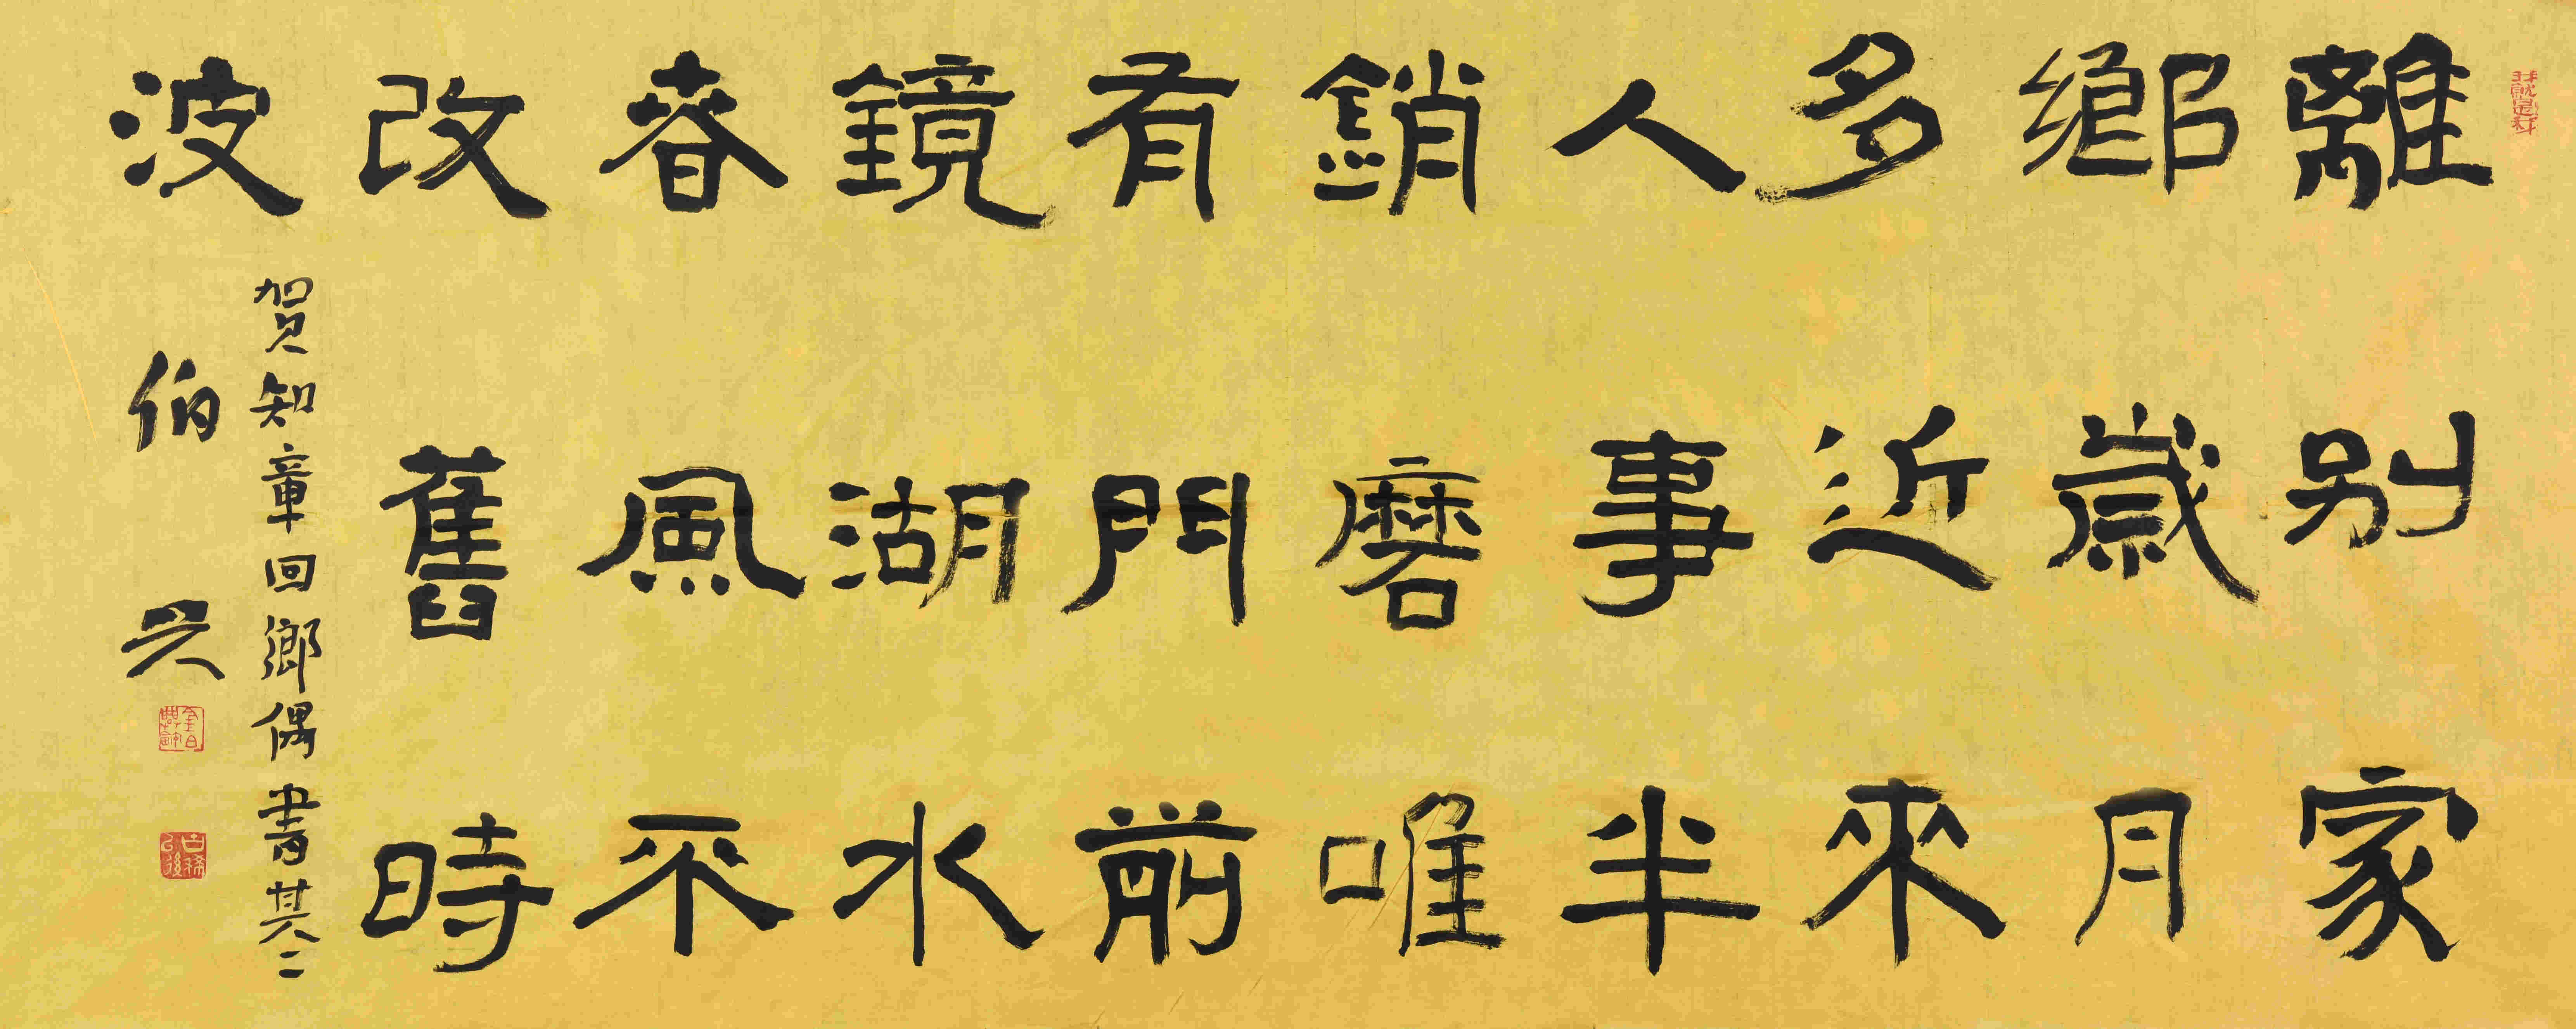 離別家
鄉歲月
多近來
人事半
銷磨唯
有門前
鏡湖水
春風不
改舊時
波
賀知章回鄉偶書其二
伯